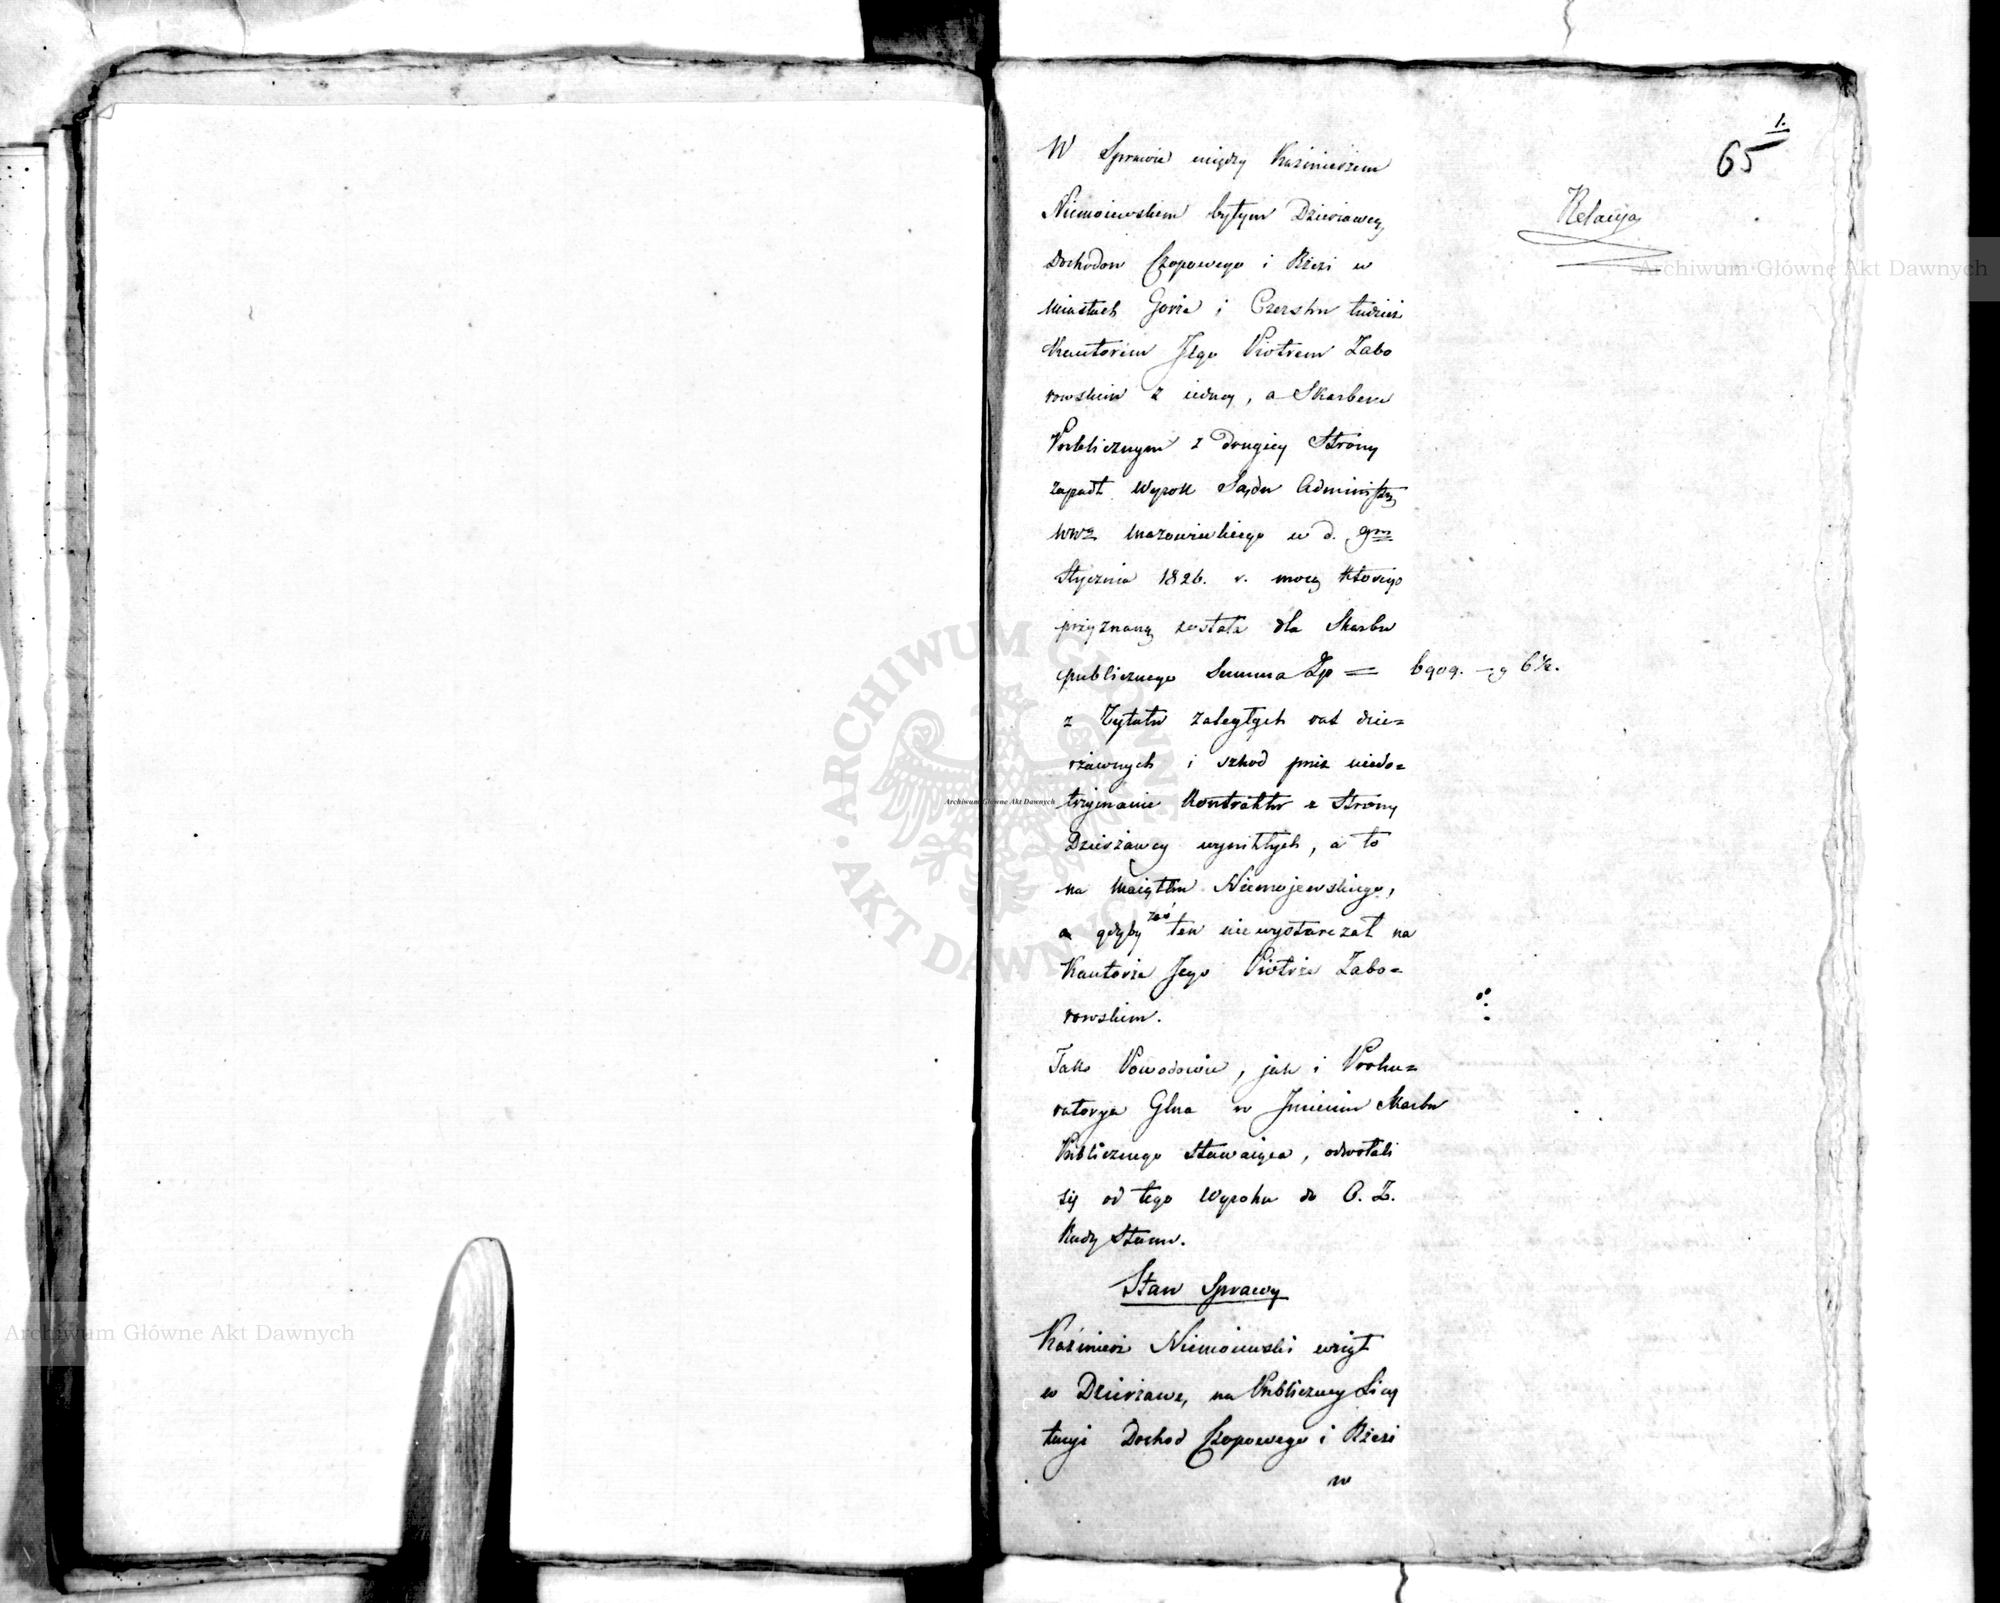 1.
65
Relacya
W Sprawie między Kazimierzem
Niemoiewskim byłym Dzierzawcą
Dochodow Czopowego i Rzezi w
miastach Gorze i Czersku tudzież
Kautorem Jego Piotrem Zabo
rowskim z iedney, a Skarbem
Publicznym z drugiey Strony
zapadł Wyrok Sądu Administr:
Wwa Mazowieckiego w d. 9m
Stycznia 1826. r. mocą ktorego
przyznaną została dla Skarbu
publicznego Summa Zp = 6909. – g 6½.
z Tytułu zaległych rat dzie=
rzawnych i szkod przez niedo=
trzymanie Kontraktu z Strony
Dzierżawcy wynikłych, a to
na maiątku Niemojewskiego,
a gdyby zaś ten niewystarczał na
Kautorze Jego Piotrze Zabo=
rowskim.
Tak Powodowie, jak i Proku=
ratorya Glna w Jmieniu Skarbu
Publicznego stawaiąca, odwołali
się od tego Wyroku do O. Z.
Rady Stanu.
Stan Sprawy
Kaźmierz Niemoiewski wziął
w Dzierżawę, na Publiczney Licy
tacyi Dochod Czopowego i Rzezi
w
Archiwum Główne Akt Dawnych
Archiwum Główne Akt Dawnych
Archiwum Główne Akt Dawnych
ARCHIWUM GŁÓWNE AKT DAWNYCH